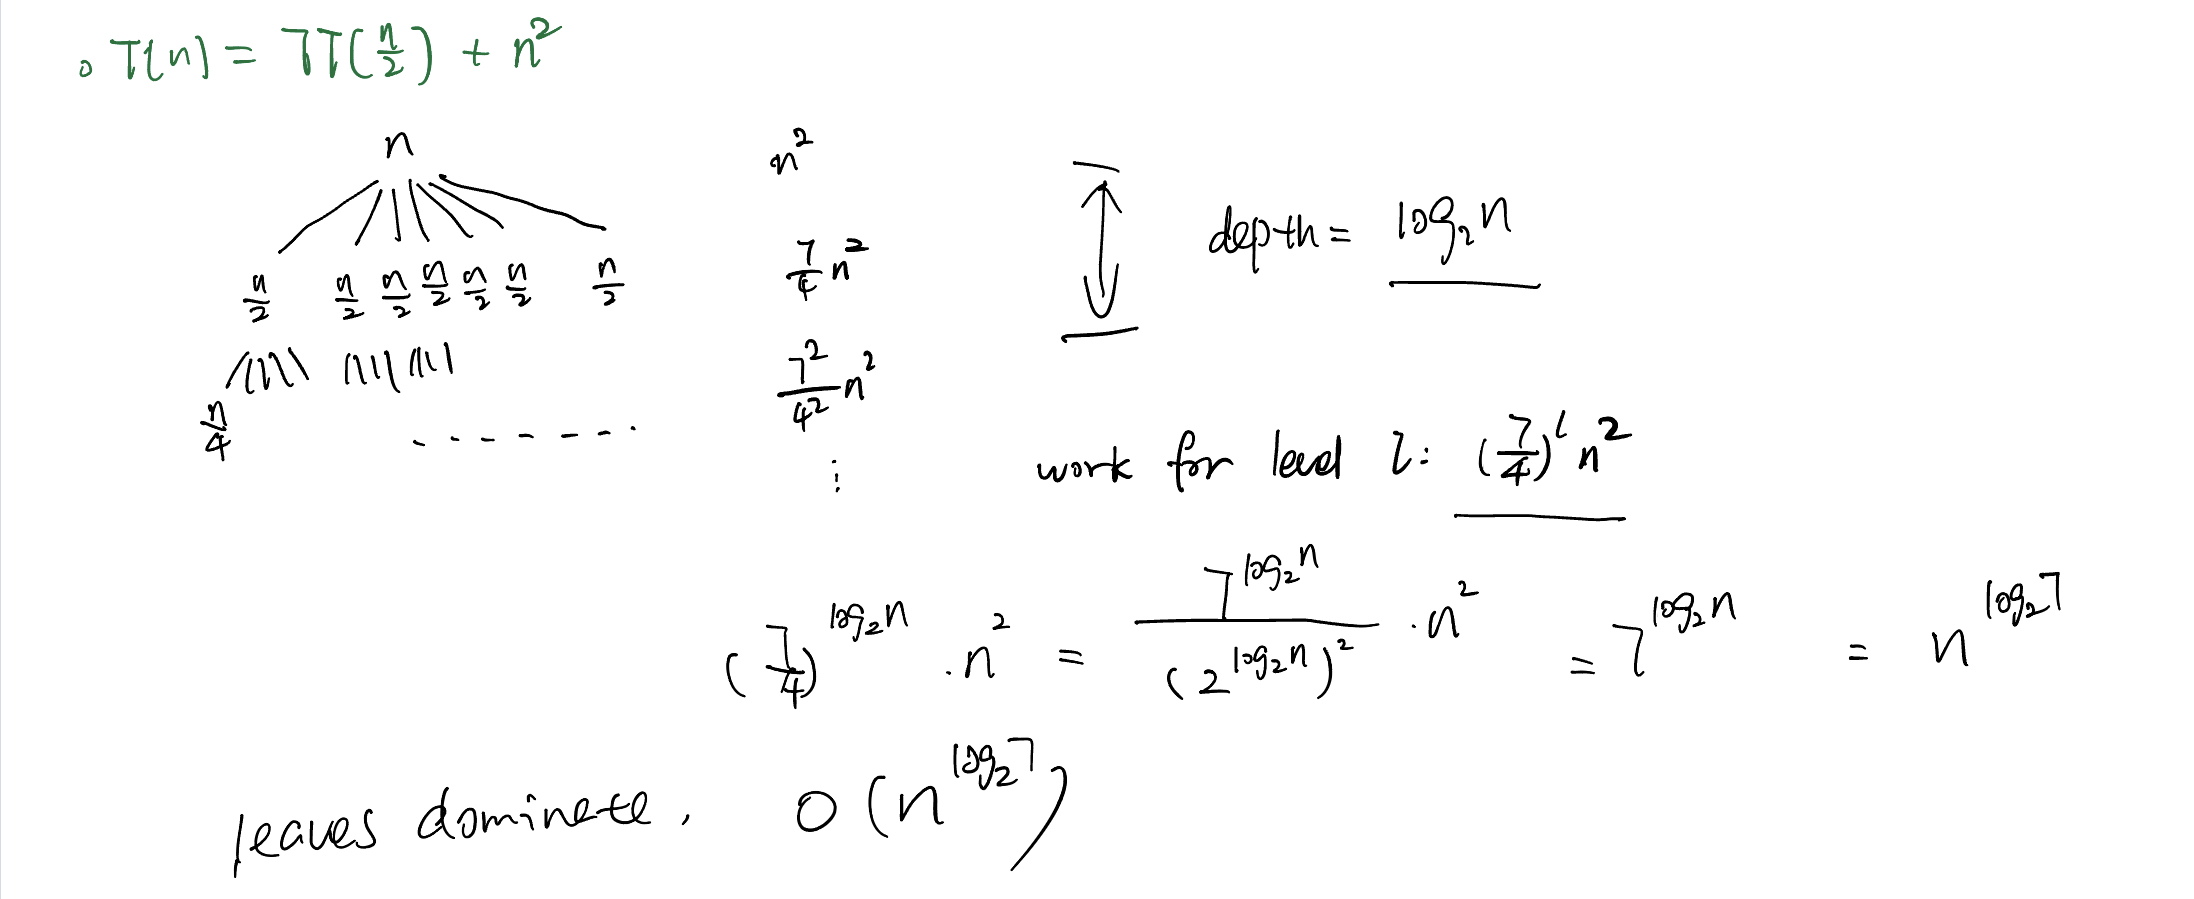 ∘ T(n) = 7T(n/2) + n²
n
n²
n/2 n/2 n/2 n/2 n/2 n/2 n/2
7/4 n²
depth = log₂n
n/4 .......
7²/4² n²
⋮
work for level l: (7/4)^l n²
(7/4)^(log₂n) · n² = 7^(log₂n) / (2^(log₂n))² · n² = 7^(log₂n) = n^(log₂7)
leaves dominate, O(n^(log₂7))